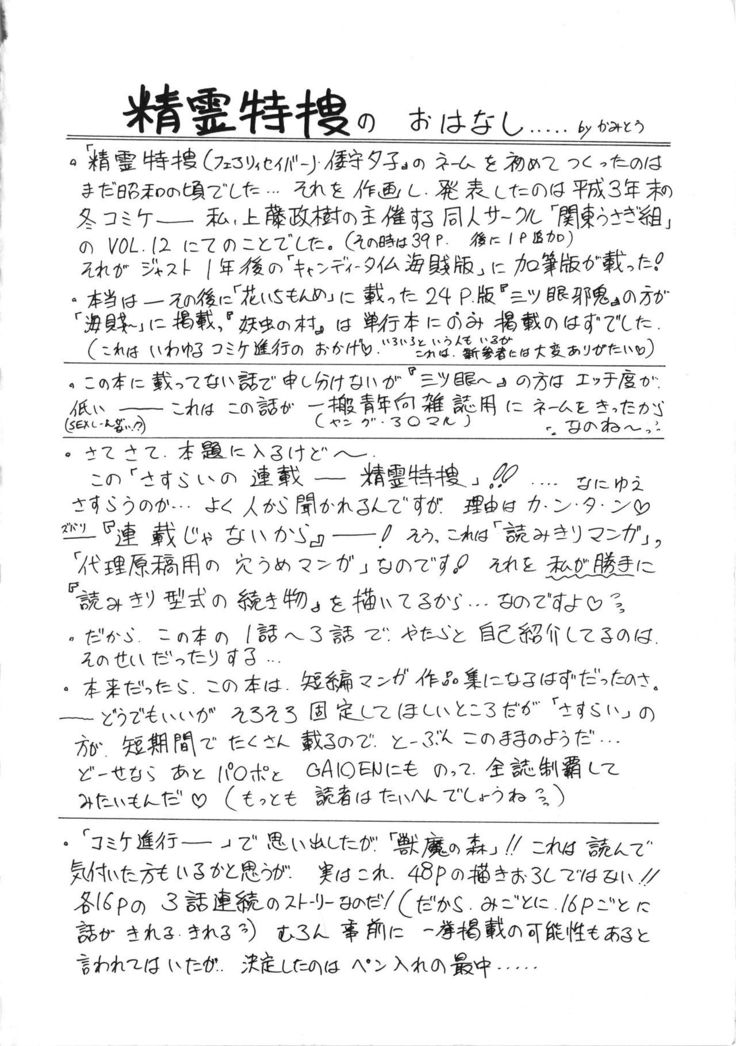 精霊特捜の おはなし..... by かみとう
。「精霊特捜(フェアリィセイバー)・倭守夕子』の ネーム を 初めて つくったのは
まだ昭和の頃でした… それを 作画し、発表したのは 平成3年末の
冬コミケ── 私、上藤政樹の主催する同人サークル「関東うさぎ組」
の VOL.12 にてのことでした。(その時は39P. 後に1P追加)
それが ジャスト 1年後の「キャンディータイム海賊版」に 加筆版が載った!
。本当は ─ その後に「花いちもんめ」に 載った 24P.版『三ツ眼邪鬼』の方が
「海賊〜」に 掲載、『妖虫の村』は 単行本にのみ 掲載のはずでした.
(これは いわゆる コミケ進行の おかげ♡. いろいろという人も いるが これは、新参者には大変ありがたい♡)
。この本に 載ってない話で申し分けないが『三ツ眼〜』の方は エッチ度が、
低い ── これは この話が 一搬青年向雑誌用に ネームをきったから
(ヤング・30マル) なのね〜っ
。さて さて、本題に入るけど〜.
この「さすらいの 連載 ─ 精霊特捜」!! .... なにゆえ
さすらうのか… よく 人から聞かれるんですが、理由はカ・ン・タ・ン♡
ズバリ『連載じゃないから』──! そう、これは「読みきりマンガ」っ
「代理原稿用の 穴うめマンガ」なのです! それを 私が勝手に
『読みきり型式の続き物』を描いてるから… なのですよ♡
。だから、この本の 1話〜3話で、やたらと自己紹介してるのは、
そのせいだったりする…
。本来だったら、この本は、短編マンガ作品集になるはずだったのさ。
── どうでもいいが そろそろ 固定して ほしいところだが「さすらい」の
方が、短期間で たくさん 載るので、とーぶん このままのようだ…
どーせなら あと パロポと GAIDENにも のって、全誌制覇して
みたいもんだ♡ (もっとも 読者は たいへんでしょうね)
。「コミケ進行──」で 思い出したが、「獣魔の森」!! これは 読んで
気付いた方もいるかと思うが、実はこれ、48Pの描きおろしではない!!
各16Pの 3話連続のストーリーなのだ! (だから、みごとに、16Pごとに
話が きれる・きれる) むろん 事前に 一挙掲載の可能性もあると
言われてはいたが、決定したのは ペン入れの最中.....